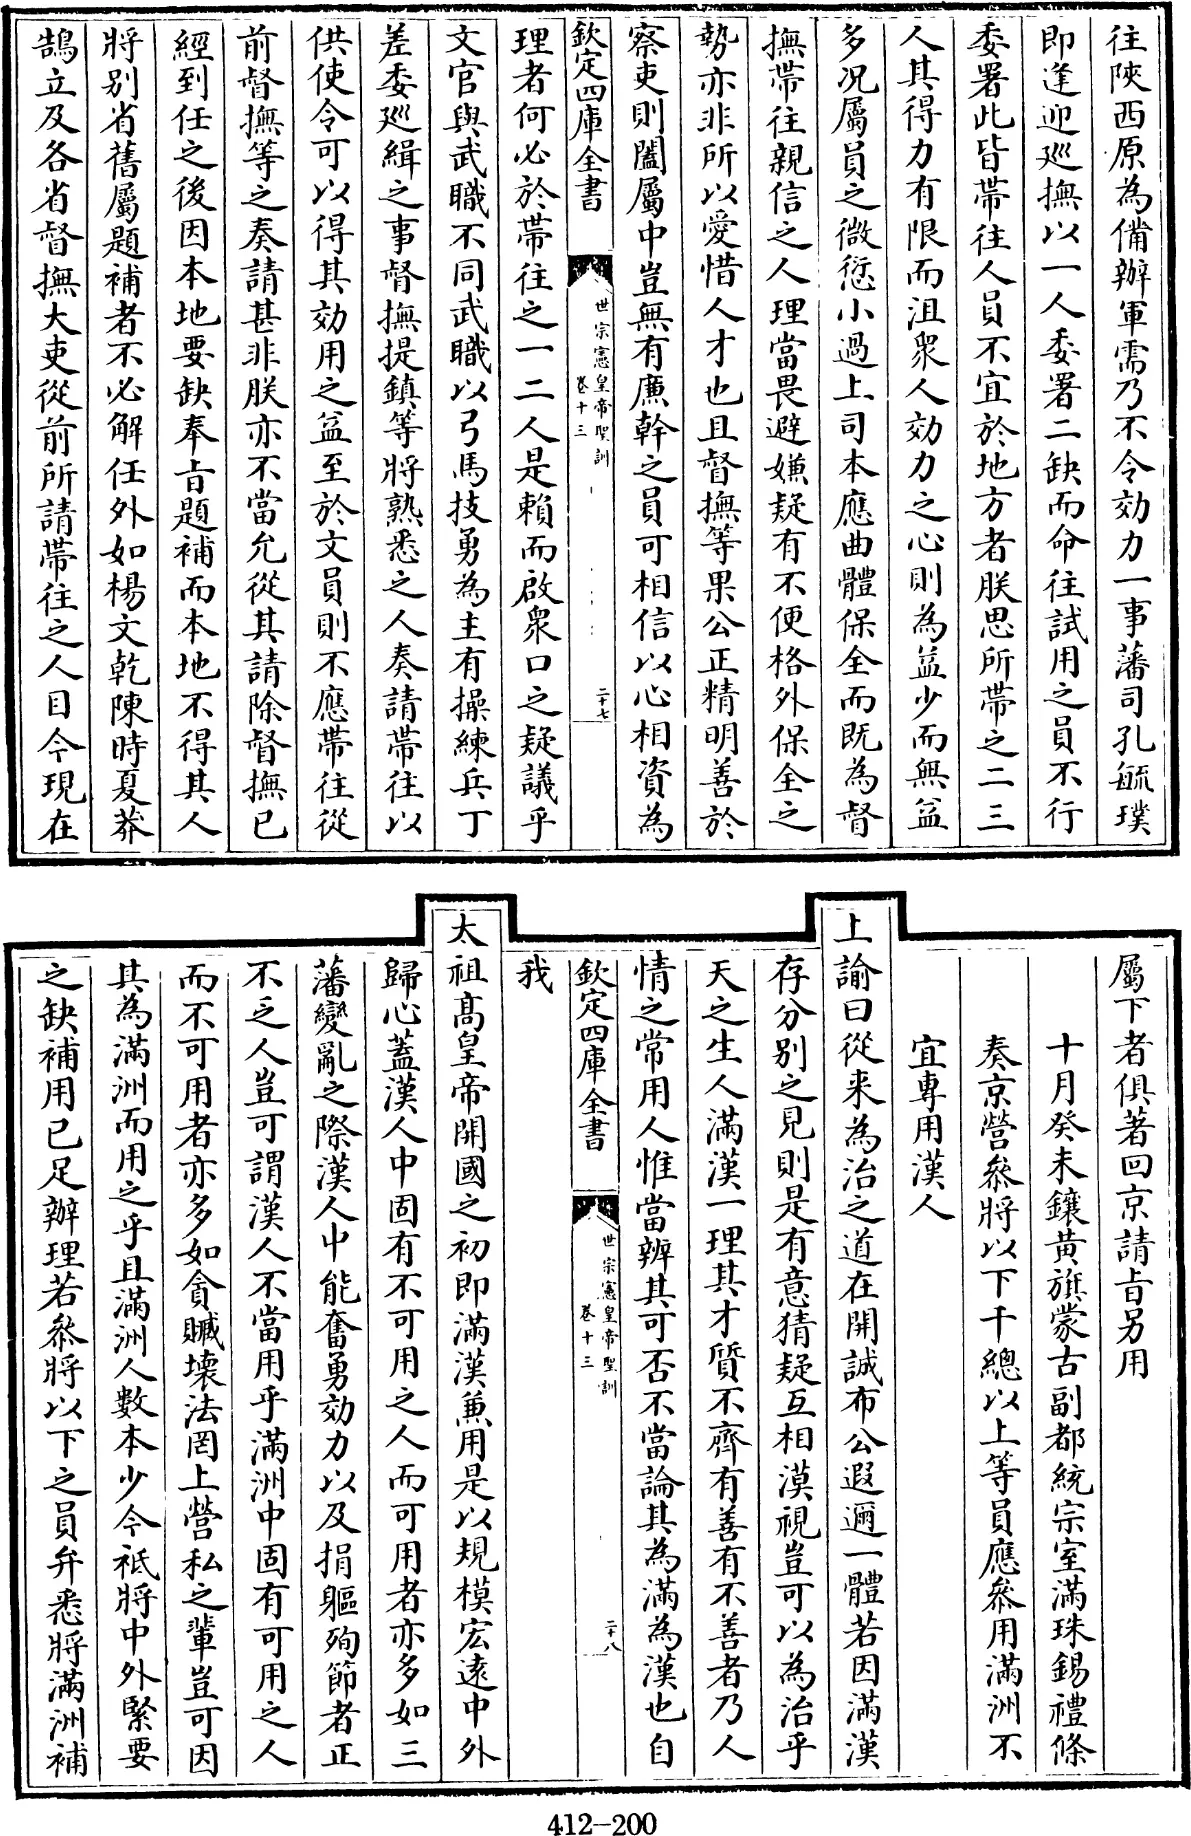 往陜西原為備辦軍需乃不令効力一事藩司孔毓璞
即逢迎廵撫以一人委署二缺而命往試用之員不行
委署此皆帶往人員不宜於地方者朕思所帶之二三
人其得力有限而沮衆人効力之心則為益少而無益
多况屬員之微愆小過上司本應曲體保全而既為督
撫帶往親信之人理當畏避嫌疑有不便格外保全之
勢亦非所以愛惜人才也且督撫等果公正精明善於
察吏則闔屬中豈無有廉幹之員可相信以心相資為
欽定四庫全書
世宗憲皇帝聖訓
卷十三
二十七
理者何必於帶往之一二人是賴而啟衆口之疑議乎
文官與武職不同武職以弓馬技勇為主有操練兵丁
差委廵緝之事督撫提鎮等將熟悉之人奏請帶往以
供使令可以得其効用之益至於文員則不應帶往從
前督撫等之奏請甚非朕亦不當允從其請除督撫已
經到任之後因本地要缺奉㫖題補而本地不得其人
將别省舊屬題補者不必解任外如楊文乾陳時夏莽
鵠立及各省督撫大吏從前所請帶往之人目今現在
屬下者俱著回京請㫖另用
十月癸未鑲黄旗蒙古副都統宗室滿珠錫禮條
奏京營叅將以下千總以上等員應叅用滿洲不
宜專用漢人
上諭曰從来為治之道在開誠布公遐邇一體若因滿漢
存分别之見則是有意猜疑互相漠視豈可以為治乎
天之生人滿漢一理其才質不齊有善有不善者乃人
情之常用人惟當辨其可否不當論其為滿為漢也自
欽定四庫全書
世宗憲皇帝聖訓
卷十三
二十八
我
太祖髙皇帝開國之初即滿漢兼用是以規模宏逺中外
歸心蓋漢人中固有不可用之人而可用者亦多如三
藩變亂之際漢人中能奮勇効力以及捐軀殉節者正
不乏人豈可謂漢人不當用乎滿洲中固有可用之人
而不可用者亦多如貪贓壊法罔上營私之輩豈可因
其為滿洲而用之乎且滿洲人數本少今祇將中外緊要
之缺補用已足辦理若叅將以下之員弁悉將滿洲補
412-200